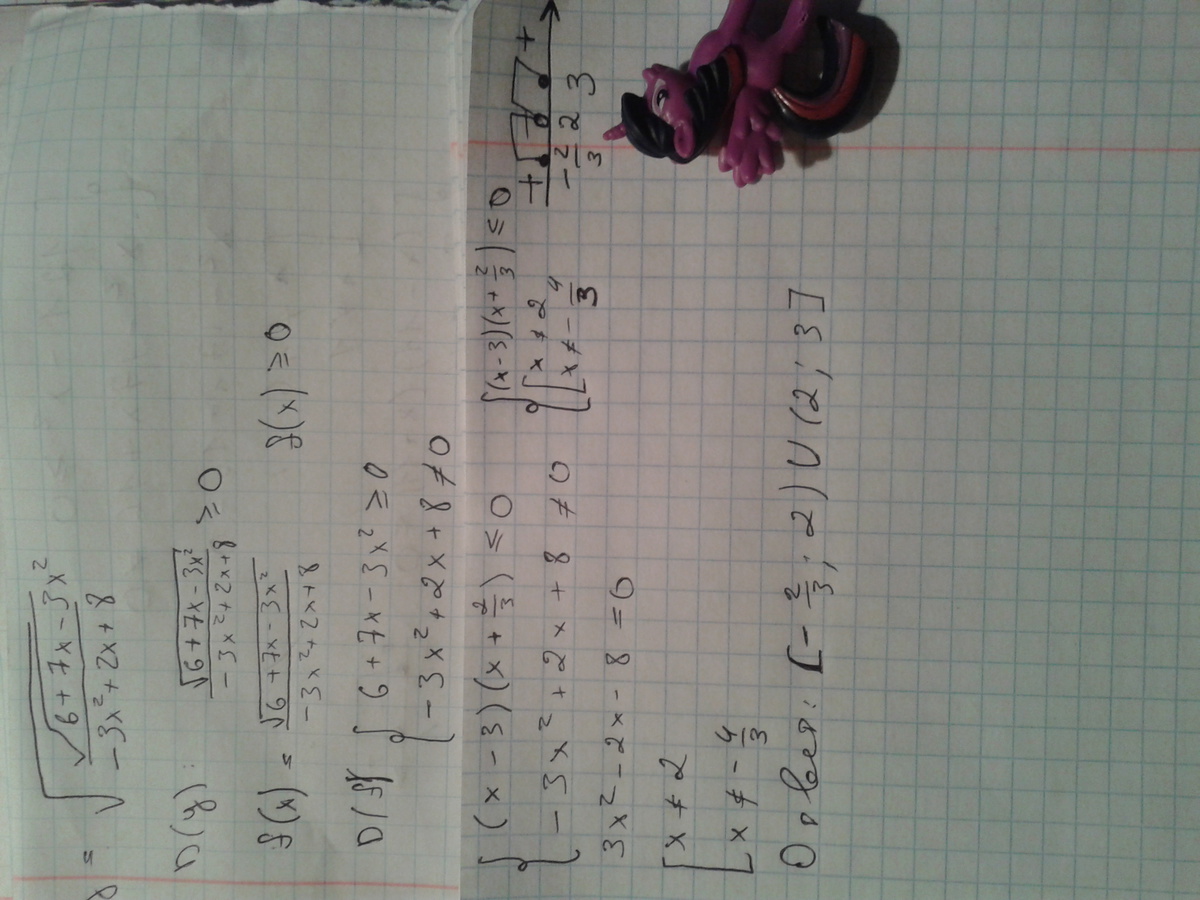 y = √(√(6+7x-3x²) / (-3x²+2x+8))
D(y): √(6+7x-3x²) / (-3x²+2x+8) ≥ 0
f(x) = √(6+7x-3x²) / (-3x²+2x+8) f(x) ≥ 0
D(f) { 6+7x-3x² ≥ 0
-3x²+2x+8 ≠ 0
{ (x-3)(x+2/3) ≤ 0 { (x-3)(x+2/3) ≤ 0
-3x²+2x+8 ≠ 0 [ x ≠ 2
x ≠ -4/3
+ - - +
-2/3 2 3
3x²-2x-8=0
[ x ≠ 2
x ≠ -4/3
Ответ: [-2/3; 2) U (2; 3]